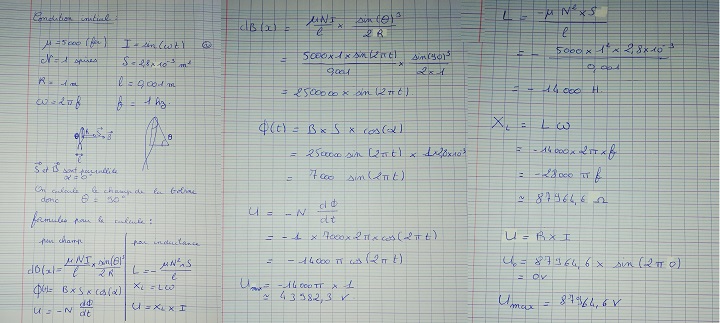 Condition initiale :
μ = 5000 (fer)    I = sin(ωt)
N = 1 spires    S = 2,8 × 10⁻³ m²
R = 1 m    l = 0,001 m
ω = 2πf    f = 1 hz.
S et B sont parallèle
α = 0°
On calcule le champ de la bobine
donc θ = 90°
formules pour le calcule :
par champ    par inductance
dB(x) = μNI/l × sin(θ)³/2R    L = -μN²×S/l
ϕ(t) = B × S × cos(α)    X_L = Lω
U = -N dΦ/dt    U = X_L × I
dB(x) = μNI/l × sin(θ)³/2R
= 5000×1×sin(2πt)/0,001 × sin(90)³/2×1
= 2500000 × sin(2πt)
ϕ(t) = B × S × cos(α)
= 250000 sin(2πt) × 1×2,8×10⁻³
= 7000 sin(2πt)
U = -N dΦ/dt
= -1 × 7000×2π×cos(2πt)
= -14000π cos(2πt)
U max = -14000π × 1
≃ 43982,3 V
L = -μN²×S/l
= - 5000 × 1² × 2,8×10⁻³/0,001
= -14000 H.
X_L = Lω
= -14000×2π×f
= -28000 π f
≃ 87964,6 Ω
U = R × I
U₀ = 87964,6 × sin(2π0)
= 0V
U max = 87964,6 V